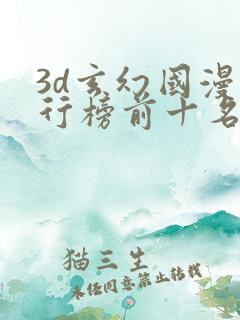 3d玄幻國漫
行榜前十名
猫三生
未经同意禁止转载